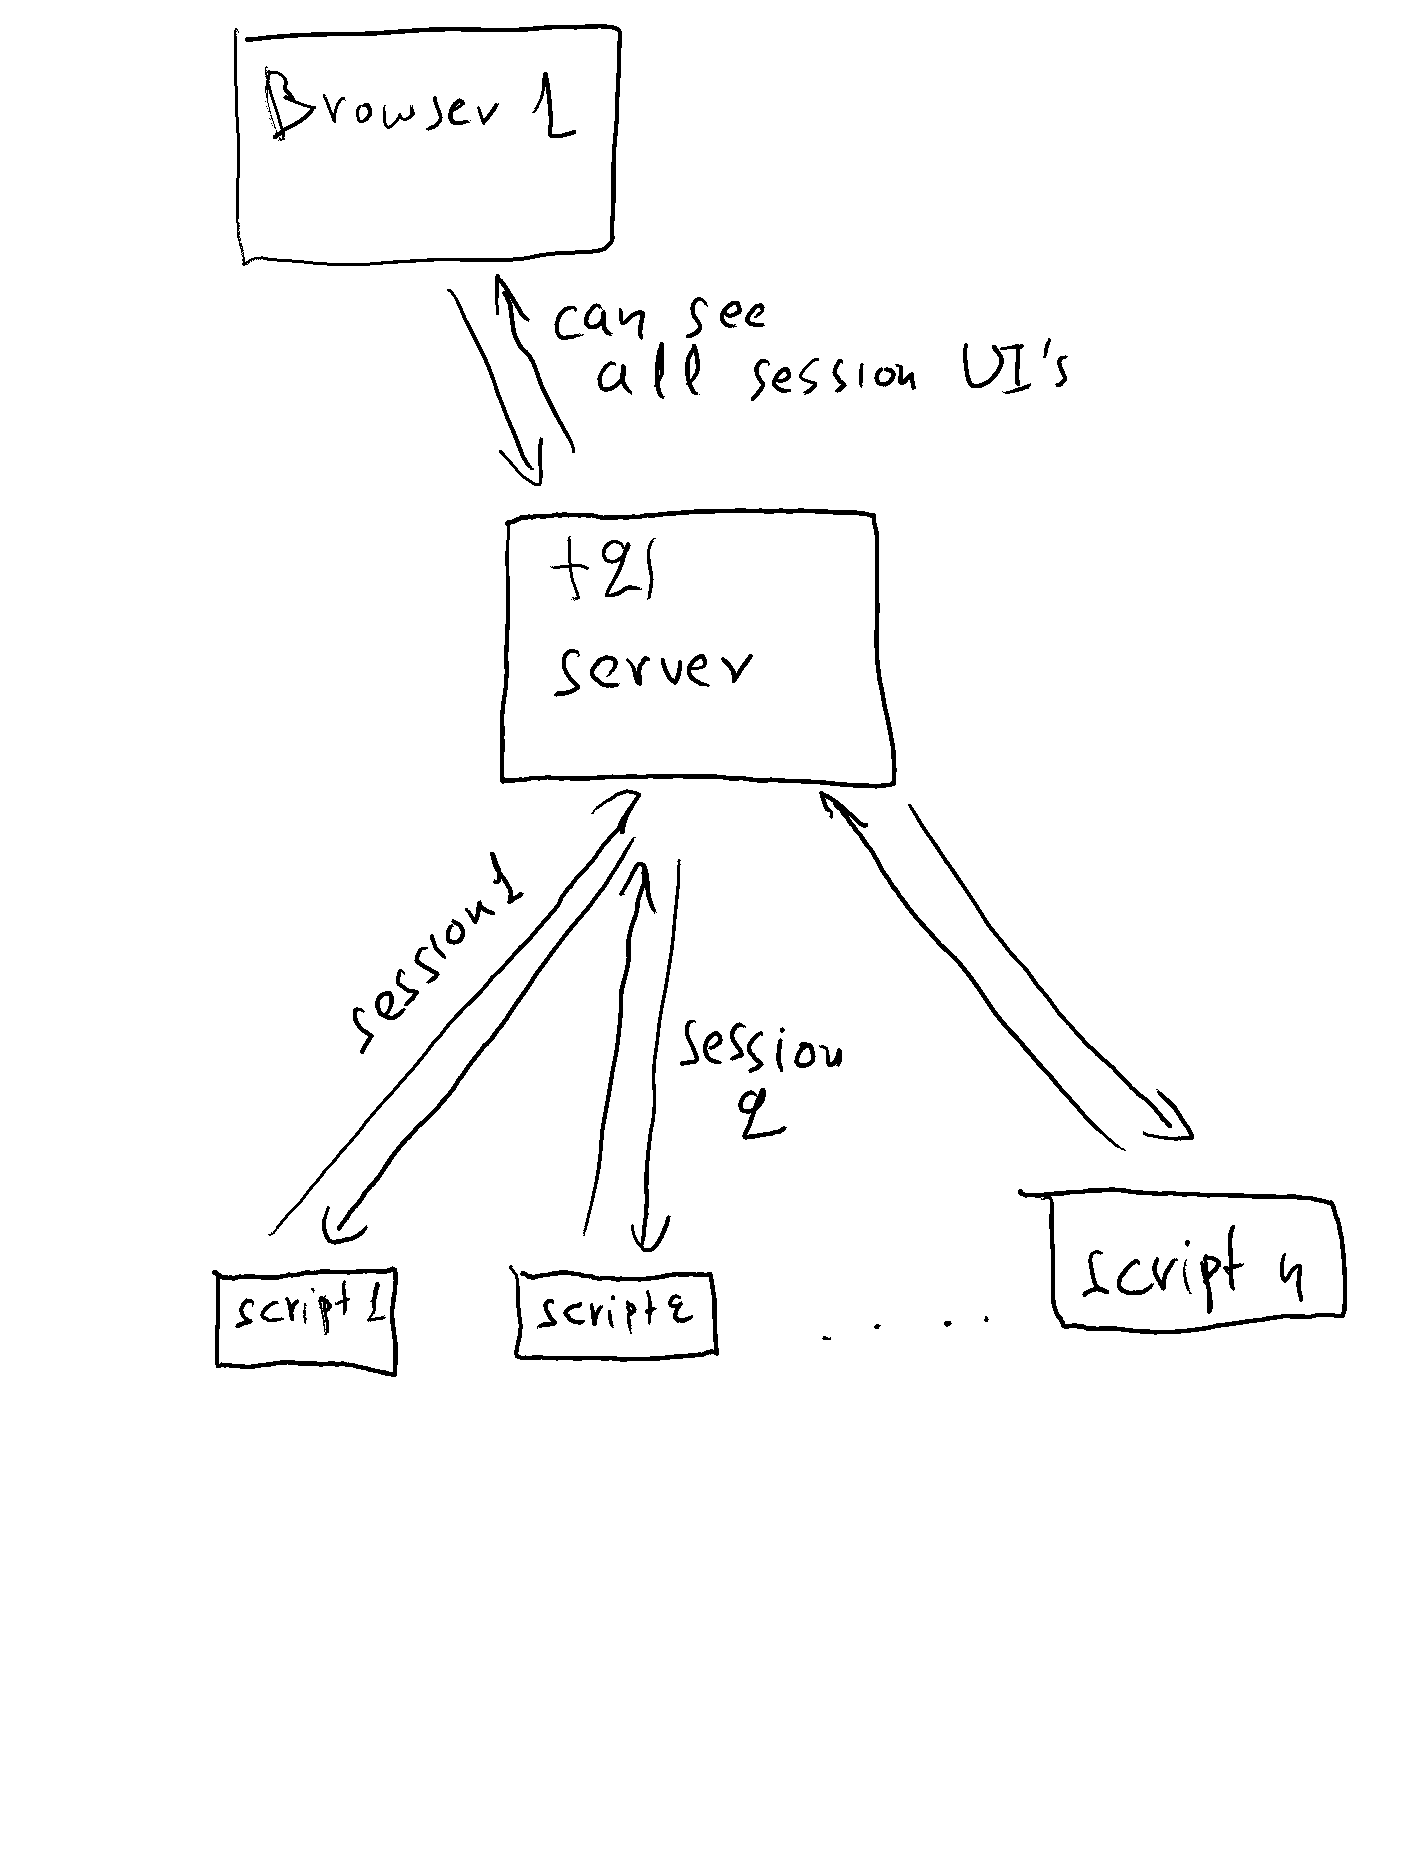 Browser 1
can see
all session UI's
t2s
server
session 1
session
2
script 1
script 2
. . . .
script n